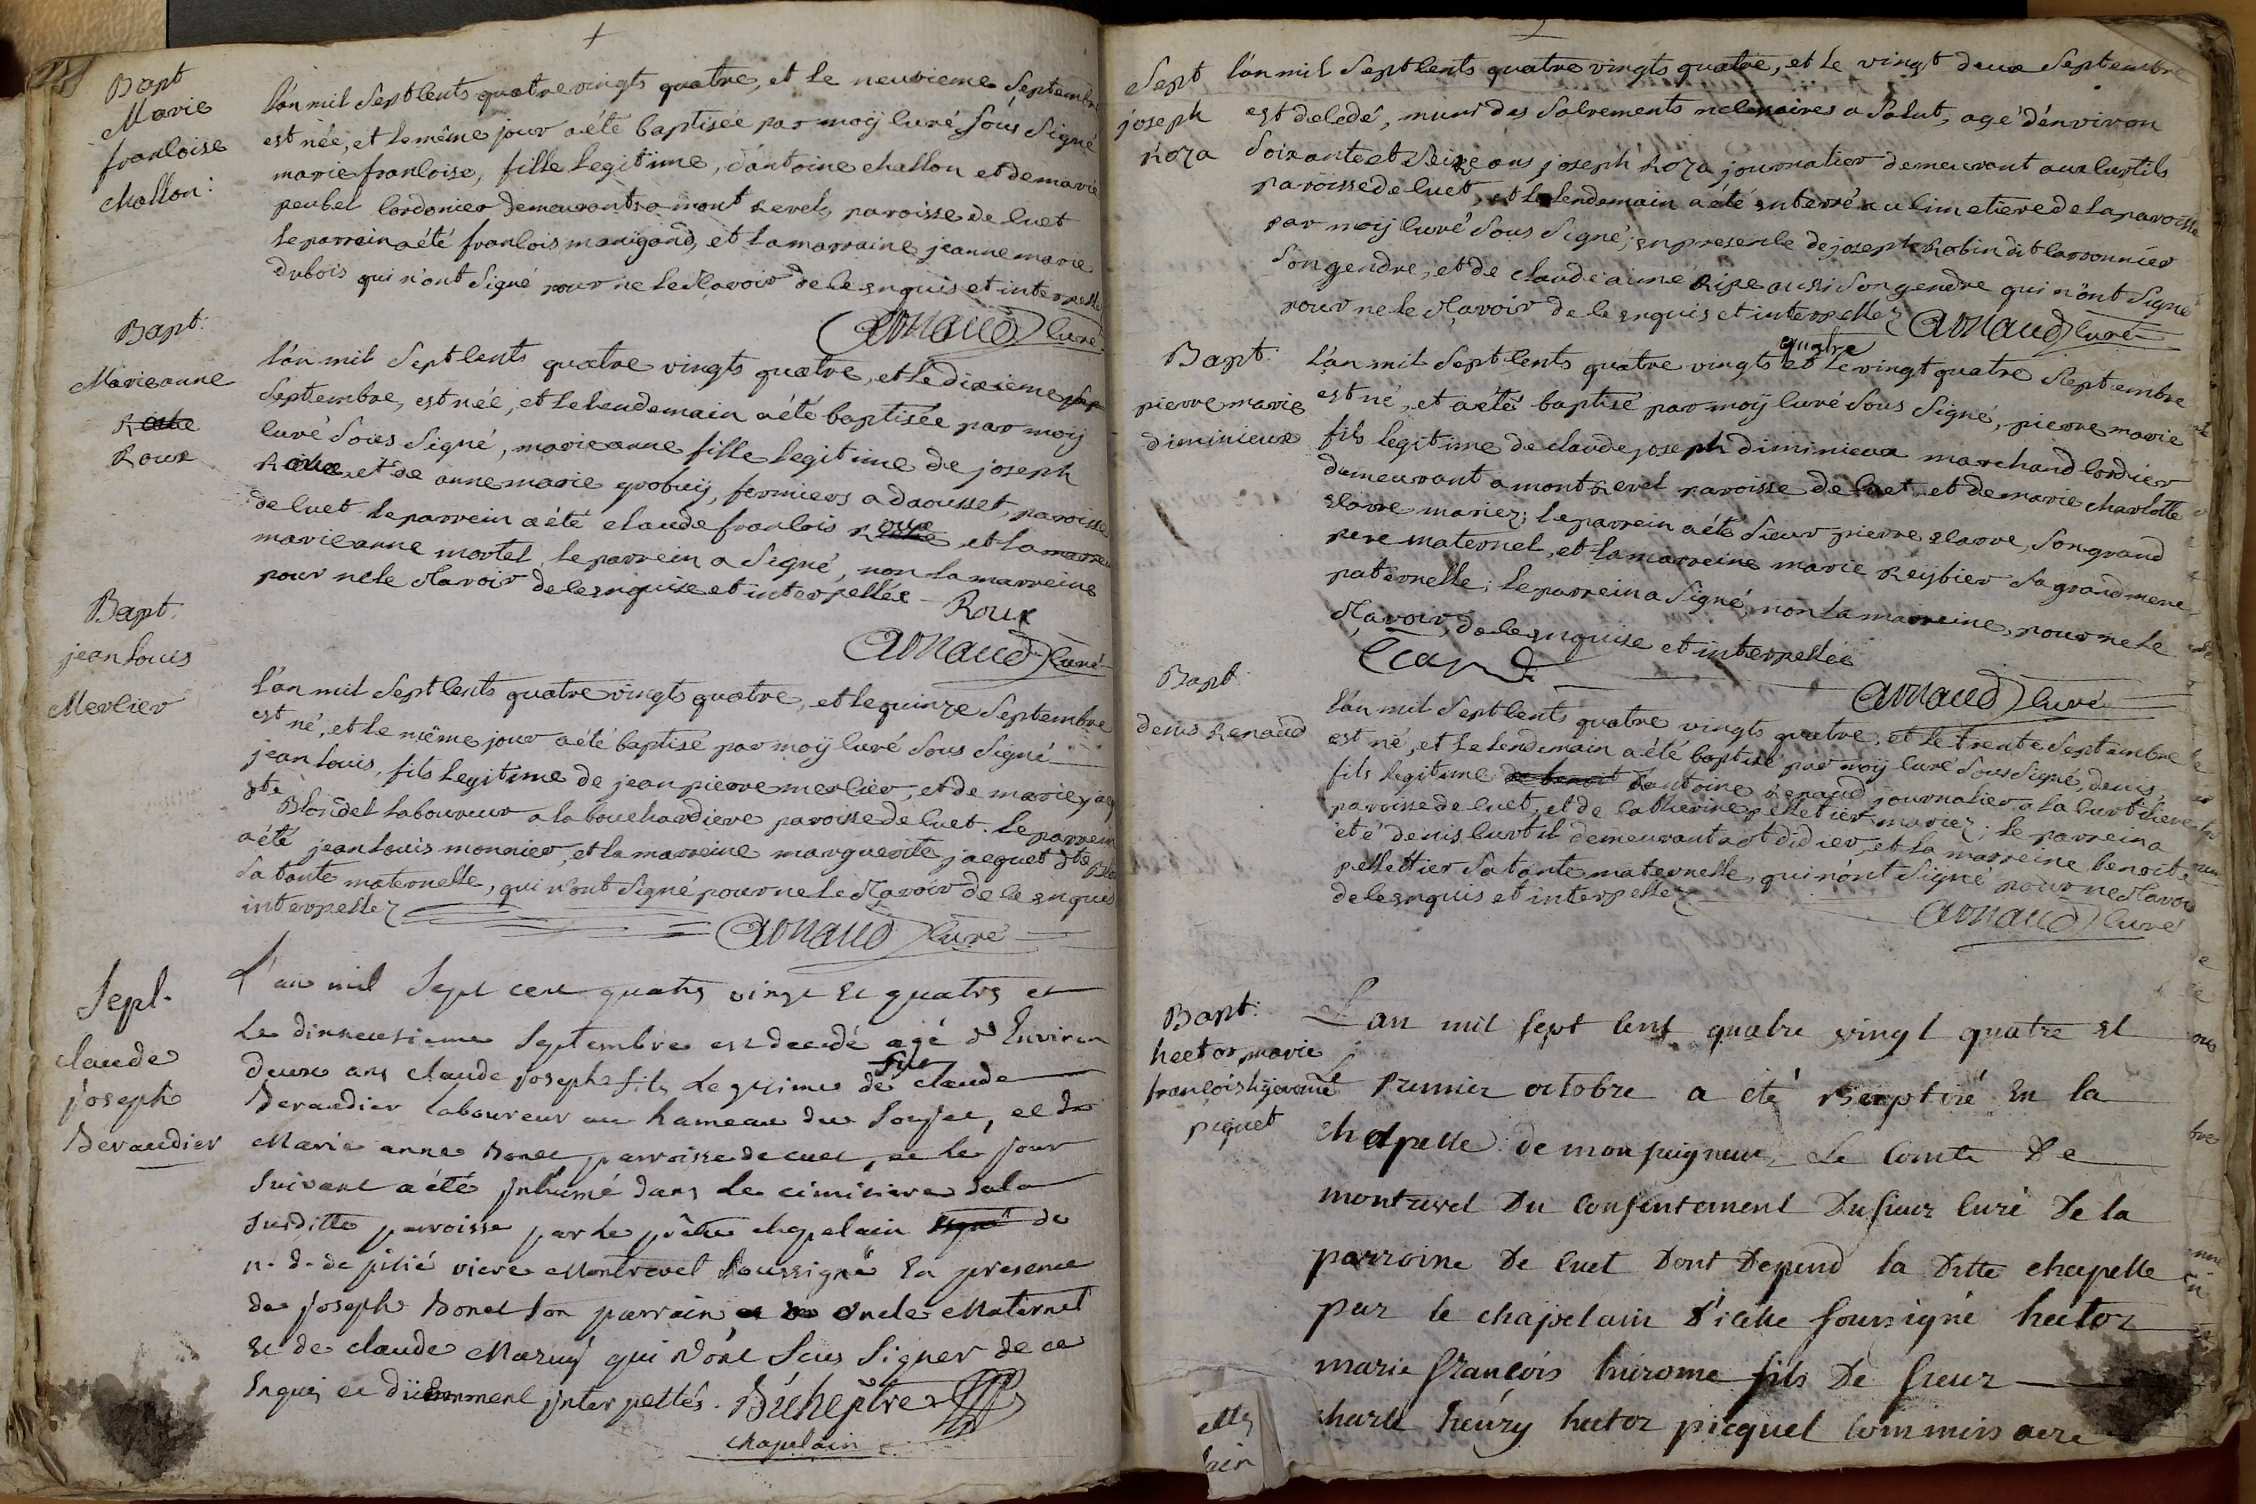 Bapt
Marie
françoise
challon :
l'an mil Sept Cents quatre vingts quatre, et le neuvieme Septembre
est née, et le même jour a été baptisée par moÿ Curé Sous Signé
marie françoise, fille legitime, d'antoine challon et de marie
peubel Cordonier demeurants a mont revel, paroisse de Cuet
le parrein a été françois manigand, et la marraine jeanne marie
dubois qui n'ont Signé pour ne le Sçavoir de Ce enquis et interpellés
arnaud Curé
Bapt:
Marieanne
Roux
l'an mil Sept Cents quatre vingts quatre, et le dixieme
Septembre, est née, et le lendemain a été baptisée par moÿ
Curé Sous Signé, marieanne fille legitime de joseph
Roux, et de anne marie grobuÿ, fermiers a daousset, paroisse
de Cuet le parrein a été claude françois Roux et la marreine
marieanne mortel, le parrein a Signé, non la marreine
pour ne le Sçavoir de Ce enquise et interpellée Roux
arnaud Curé
Bapt.
jean Louis
Merlier
l'an mil Sept Cents quatre vingts quatre, et le quinze Septembre
est né, et le même jour a été baptisé par moÿ Curé Sous Signé
jean Louis, fils legitime de jean pierre merlier, et de marie jaq
dte Blondel Laboureur a la bouchardiere paroisse de Cuet. le parrein
a été jean Louis monnier, et la marreine marguerite jacquet dte Blo
Sa tante maternelle, qui n'ont Signé pour ne le Sçavoir de Ce enquis
interpellez
arnaud Curé
Sept.
claude
joseph
Beraudier
L'an mil Sept cent quatre vingt et quatre et
Le dixneusieme Septembre est decedé agé d'Environ
deux ans claude joseph fils Legitime de fûs claude
Beraudier Laboureur au hameau du Soujet, et de
Marie anne Donet parroisse de cuet, et le jour
Suivant a été jnhumé dans Le cimitiere dela
Susditte parroisse par le prêtre chapelain de
n. d. de pitié viere Montrevel Soussigné En presence
de joseph Donet son parrain oncle Maternel
Et de claude Mazuÿ qui N'ont Sceus Signer de ce
Enquis et düemment jnterpellés. Bûcheptre
chapelain
Sept
joseph
Roza
l'an mil Sept Cents quatre vingts quatre, et le vingt deux Septembre
est decedé, muni des Sacrements necessaires a Salut, agé d'environ
Soixante et Seize ans joseph Roza journalier demeurant aux Curtils
paroisse de Cuet, et le lendemain a été enterré au Cimetiere de la paroisse
par moÿ Curé Sous Signé, en presence de joseph Robin dit larronnier
Son gendre, et de claude aimé Ripe aussi Son gendre qui n'ont Signé
pour ne le Sçavoir de Ce enquis et interpellez arnaud Curé
Bapt:
pierre marie
diminieux
l'an mil Sept Cents quatre vingts quatre et le vingt quatre Septembre
est né, et a été baptisé par moÿ Curé Sous Signé, pierre marie
fils legitime de claude joseph diminieux marchand Cordier
demeurant a mont Revel paroisse de Cuet, et de marie charlotte
escarre mariez; le parrein a été Sieur pierre escarre, Son grand
pere maternel, et la marreine marie Reÿbier Sa grand mere
paternelle; le parrein a Signé, non la marreine, pour ne le
Sçavoir, de Ce enquise et interpellée
arnaud Curé
Bapt:
denis Renaud
l'an mil Sept Cents quatre vingts quatre, et le trente Septembre
est né, et le lendemain a été baptisé par moÿ Curé Sous Signé, denis,
fils legitime de benoit d'antoine Renaud journalier, a la Curtiliere
paroisse de Cuet, et de Catherine pelletier mariez; le parrein a
été denis Curtil demeurant a st didier, et la marreine benoite
pellettier Sa tante maternelle, qui n'ont Signé pour ne Sçavoir
de Ce enquis et interpellez
arnaud Curé
Bapt:
hector marie
françois hyerome
piquet
L'an mil sept cent quatre vingt quatre Et
Le Premier octobre a été Baptisé En la
chapelle de monseigneur Le Comte De
montrevel Du consentement Du sieur Curé De la
parroine De Cuet Dont Depend la Ditte chapelle
par le chapelain D'icelle soussigné hector
marie françois hierome fils De sieur
charle heńry hector picquet Commissaire